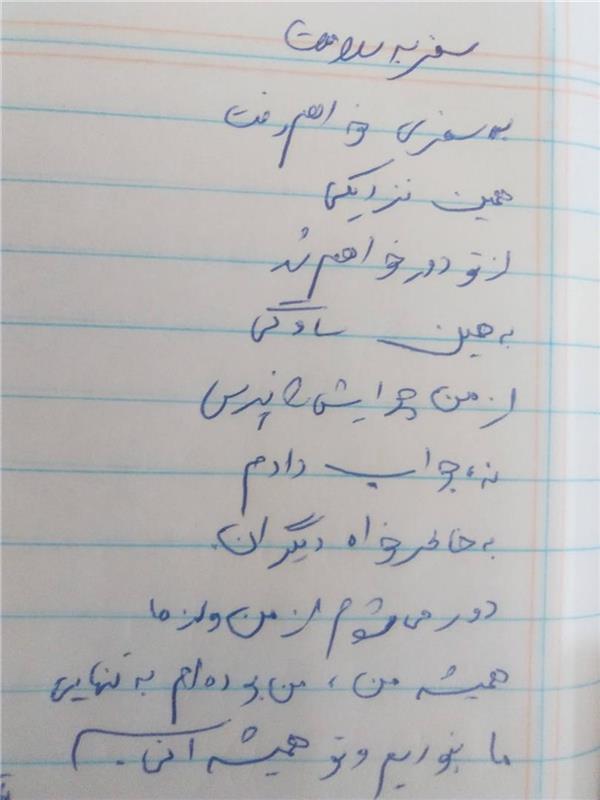 سفر به سلامت
به سفری خواهم رفت
همین نزدیکی
از تو دور خواهم شد
به همین سادگی
از من چرایش را نپرس
نه، جواب دادم
به خاطرخواه دیگران.
دور می شوم از من و از ما
همیشه من، من بوده ام به تنهایی
ما نبودیم و تو همیشه آنی.